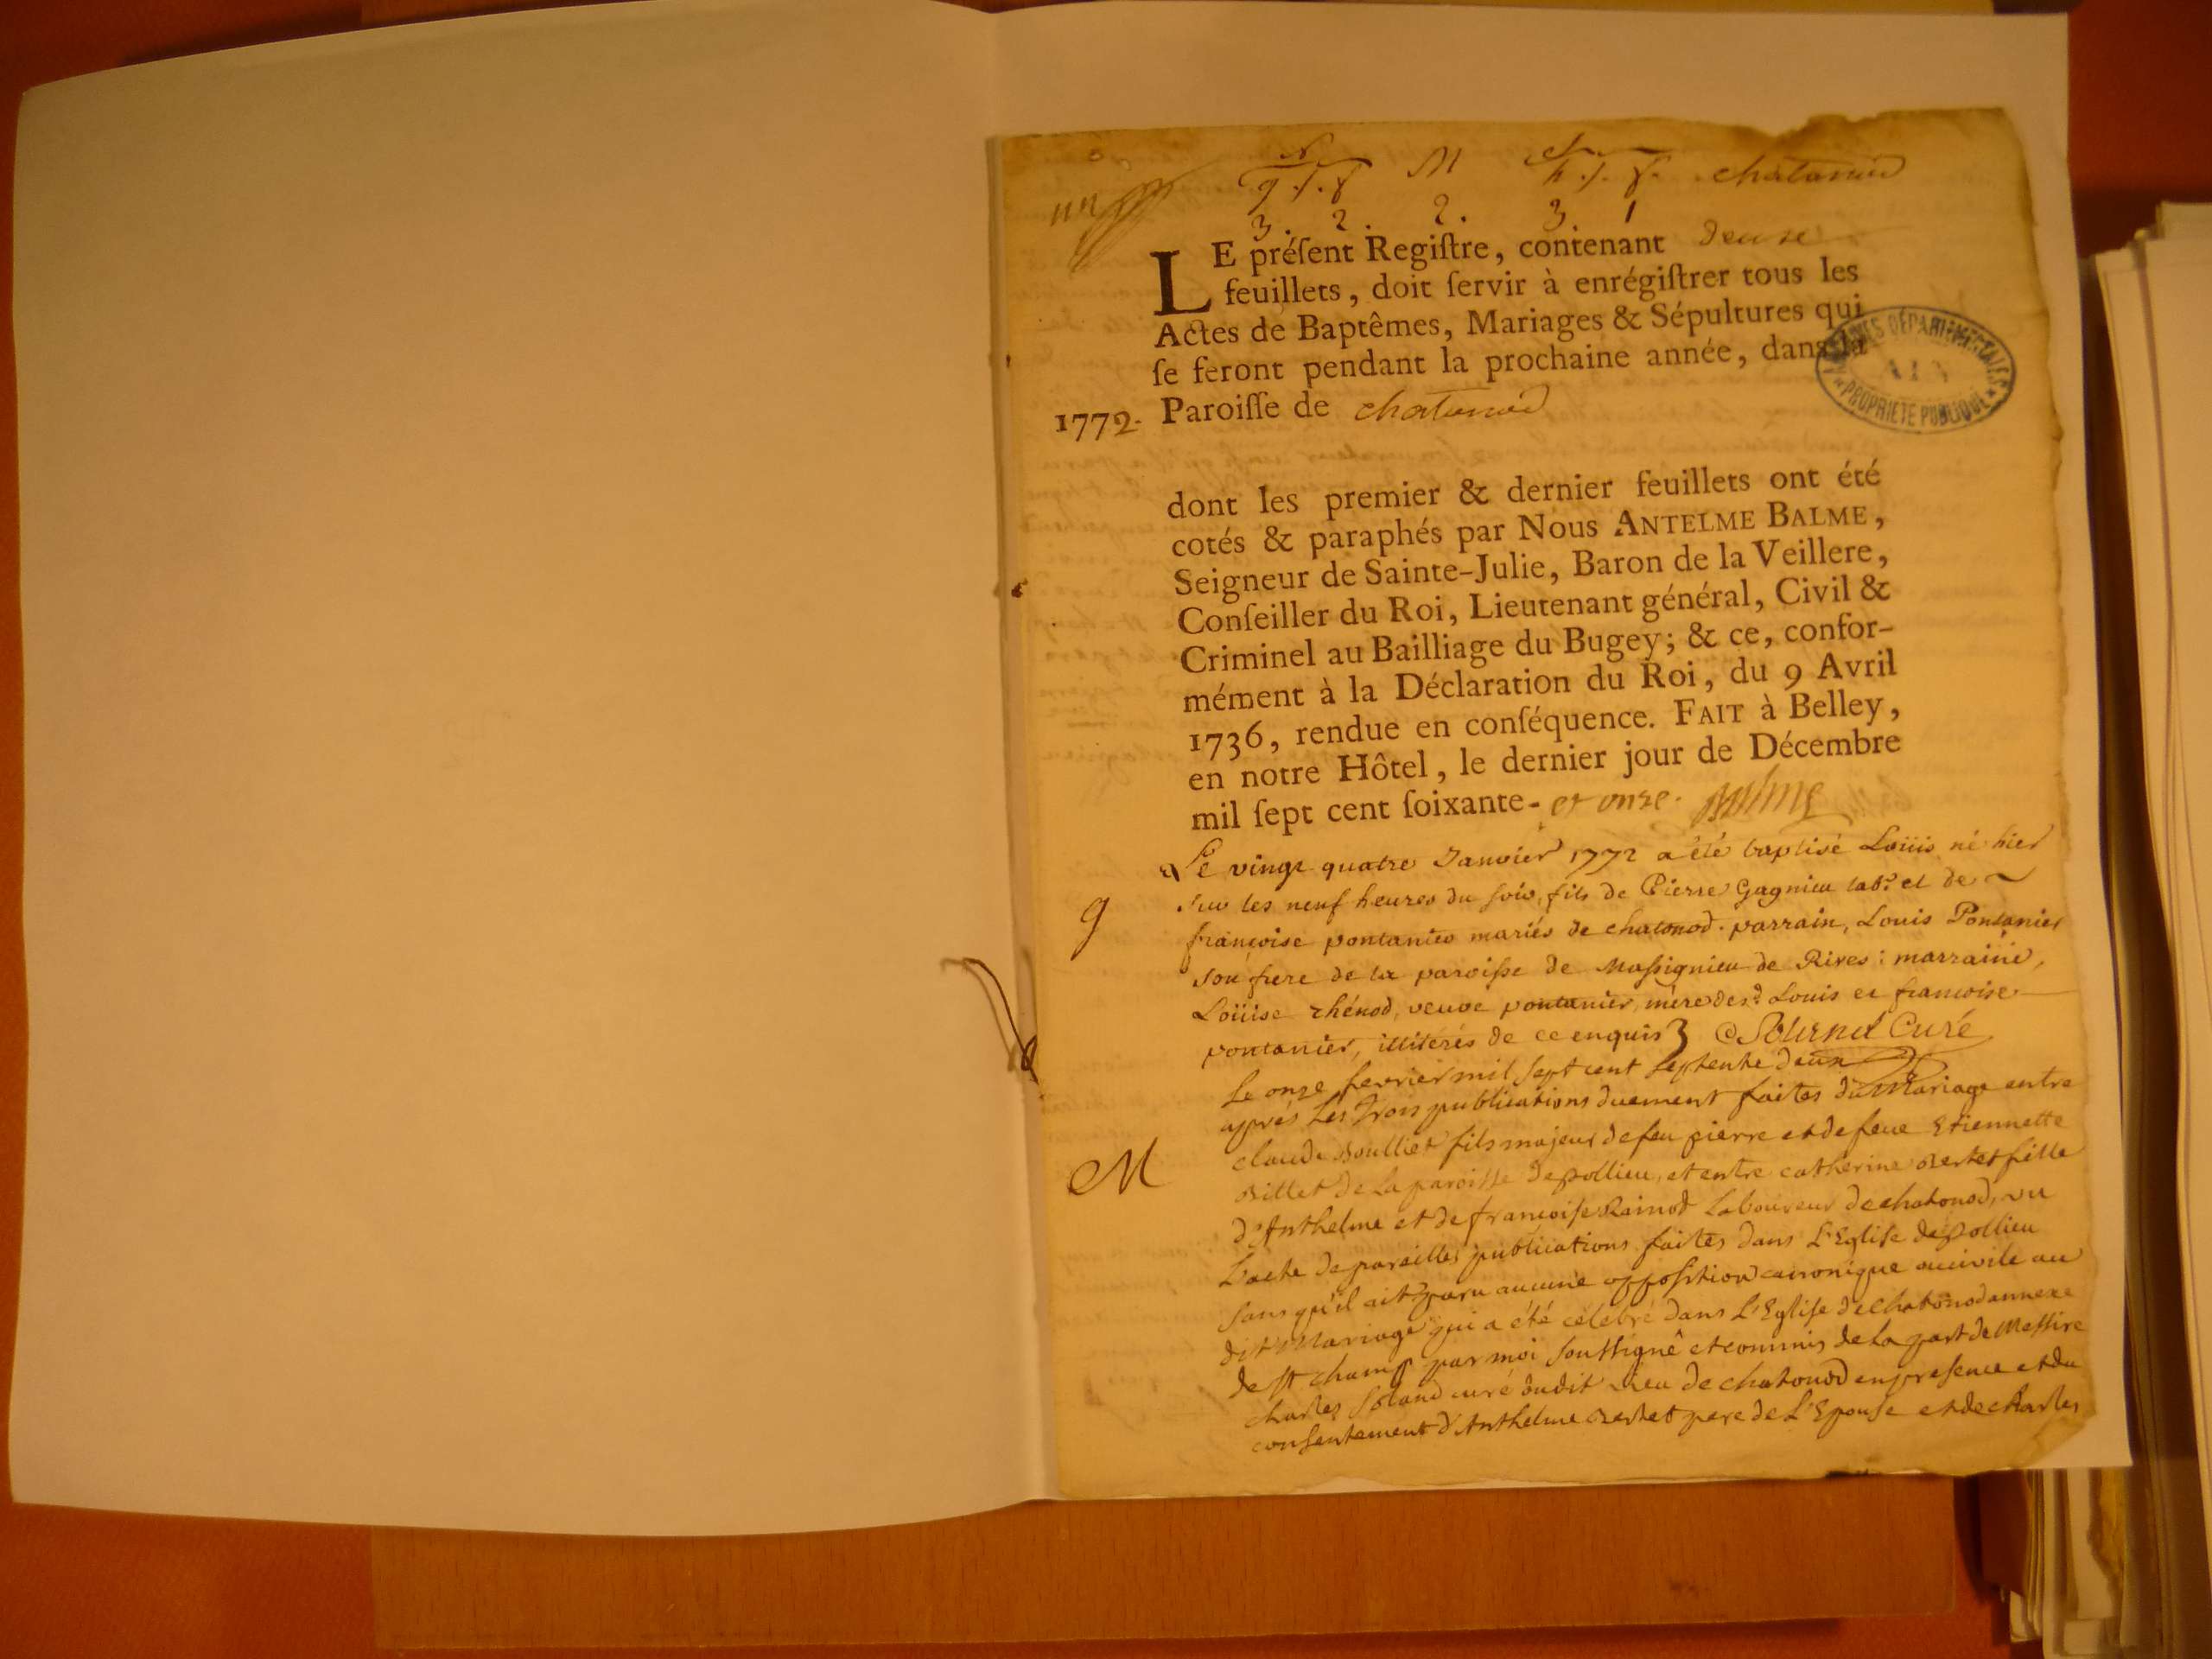 un
N M
g. f. h. f. chatonod
3. 2. 2. 3. 1
LE préſent Regiſtre, contenant deuxe
feuillets, doit ſervir à enrégiſtrer tous les
Actes de Baptêmes, Mariages & Sépultures qui
ſe feront pendant la prochaine année, dans la
1772. Paroiſſe de chatonod
ARCHIVES DÉPARTEMENTALES
AIN
PROPRIÉTÉ PUBLIQUE
dont les premier & dernier feuillets ont été
cotés & paraphés par Nous ANTELME BALME,
Seigneur de Sainte-Julie, Baron de la Veillere,
Conſeiller du Roi, Lieutenant général, Civil &
Criminel au Bailliage du Bugey; & ce, confor-
mément à la Déclaration du Roi, du 9 Avril
1736, rendue en conſéquence. FAIT à Belley,
en notre Hôtel, le dernier jour de Décembre
mil ſept cent ſoixante- et onze. Balme
Le vingt quatre Janvier 1772 a été baptisé Loüis né hier
sur les neuf heures du soir, fils de Pierre Gagnieu lab.r et de
g françoise pontanier mariés de chatonod. parrain, Louis Pontanier
son frere de la paroisse de Massignieu de Rives: marraine,
Loüise thénod, veuve pontanier, mère desd. Louis et françoise
pontanier, illitérés de ce enquis Curé
Le onze fevrier mil sept cent septente deux
après Les trois publications duement faites du Mariage entre
claude Boulliet fils majeur de feu pierre et de feue Etiennette
M Billet de La paroisse de pollieu, et entre catherine Bertet fille
d'Anthelme et de françoise Rainod Laboureur de chatonod, vu
L'acte de pareilles publications faites dans L'Eglise de pollieu
sans qu'il ait paru aucune opposition canonique ou civile au
dit Mariage qui a été célébré dans L'Eglise de chatonod annexe
de St champ par moi soussigné et commis de La part de Messire
charles curé dudit Lieu de chatonod en presence et du
consentement d'Anthelme Bertet pere de L'Epouse et de charles